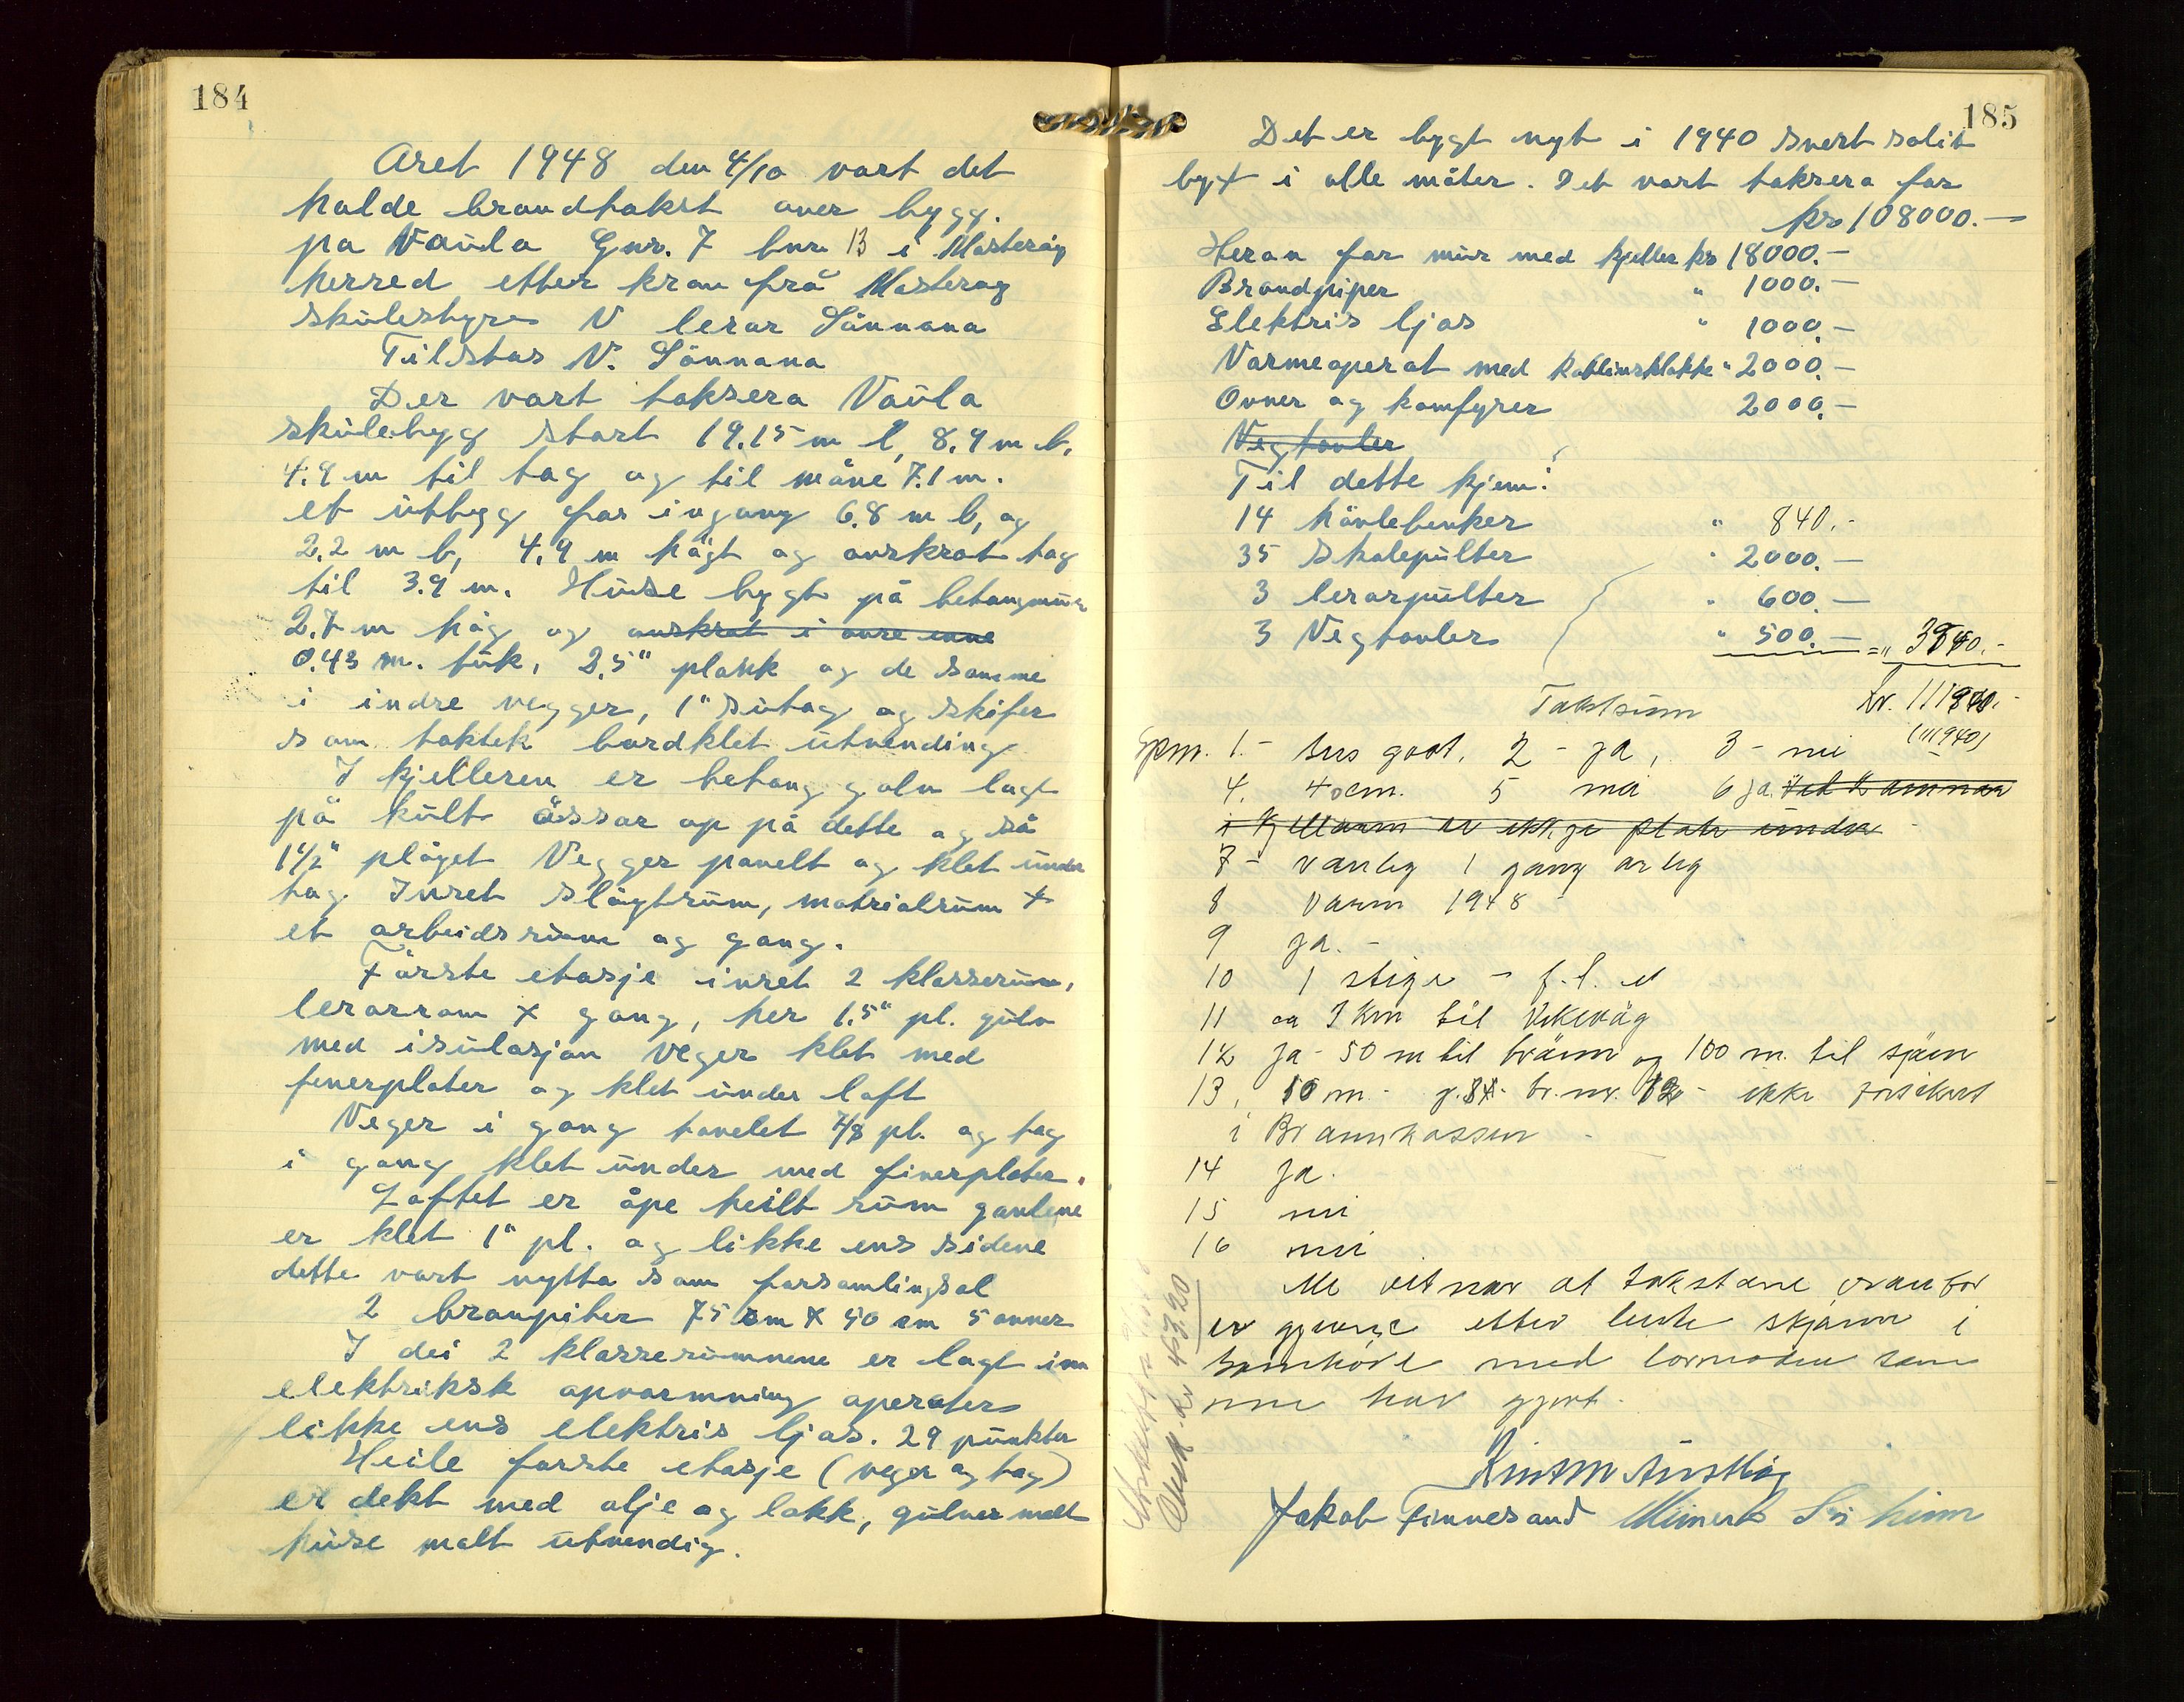 184
Året 1948 den 4/10 vart det
halde brandtakst over bygg.
på Vaula Gnr. 7 bnr 13 i Mosterøy
herred etter krav frå Mosterøy
skulestyre V lerar Sönnana
Tilstas V. Sönnana
Der vart taksera Vaula
skulebygg start 19.15 m l, 8.9 m b.
4.9 m til tag og til möne 7.1 m.
et utbygg for ingang 6.8 m l, og
2.2 m b, 4.9 m högt og avskrot tag
til 3.9 m. Huse bygt på betongmur
2.7 m hög og avskrot i övre enne
0.43 m. tük, 2.5" plank og de samme
i indre vegger, 1" sutag og skifer
som taktek bordklet utvending
I kjelleren er betong golv lagt
på kult åssar op på dette og så
1 1/2" plöget Vegger panelt og klet under
tag. Inret slöygtrum, matrialrum +
et arbeidsrum og gang.
Förste etasje inret 2 klasserum,
lerarrom + gang, her 1.5" pl. gulv
med isulasjon Veger klet med
finerplater og klet under loft
Veger i gang panelet 7/8 pl. og tag
i gang klet under med finerplater.
Loftet er åpe heilt rum gavlene
er klet 1" pl. og likke ens sidene
dette vart nytta som forsamlingsal
2 branpiber 75 cm x 50 cm 5 ovner
I dei 2 klasserumnene er lagt inn
elektriksk opvarmning aperater
likke ens elektris ljos. 29 punkter
Heile forste etasje (veger og tag)
er dekt med olje og lakk, gulver malt
huse malt utvendig.
185
Det er bygt nyt i 1940 svert solit
bygt i alle måter. Det vart taksera for
kr 108000.—
Herav for mur med kjeller kr 18000.—
Brandpiper " 1000.—
Elektris ljos " 1000.—
Varmeaperat med koblinsklokke " 2000.—
Ovner og komfyrer 2000.—
Vegtavler
Til dette kjem:
14 hövlebenker " 840.-
35 Skolepulter " 2000.—
3 lerarpulter " 600.—
3 Vegtavler " 500.— = " 3940.-
Takstsum kr. 111940.-
(111940)
Spm. 1.- Svs godt. 2 - ja, 3 - nei
4. 40cm. 5 nei 6 ja. ved kamnar
i kjellaren er ikkje plate under -
7 - vanleg 1 gang arleg
8 Vaarn 1948 -
9 ja. -
10 1 stige -
11 ca 3 km til Vikevåg
12 ja - 50 m til brönn og 100 m. til sjøen
13, 10 m - g. br.nr. 12 - ikke forsikret
i Brannkassen -
14 ja.
15 nei
16 nei
Me vitnar at takstane ovanfor
er gjevne etter beste skjønn i
samhöve med lovnaden som
me har gjort.
43.20
Jakob Finnesand